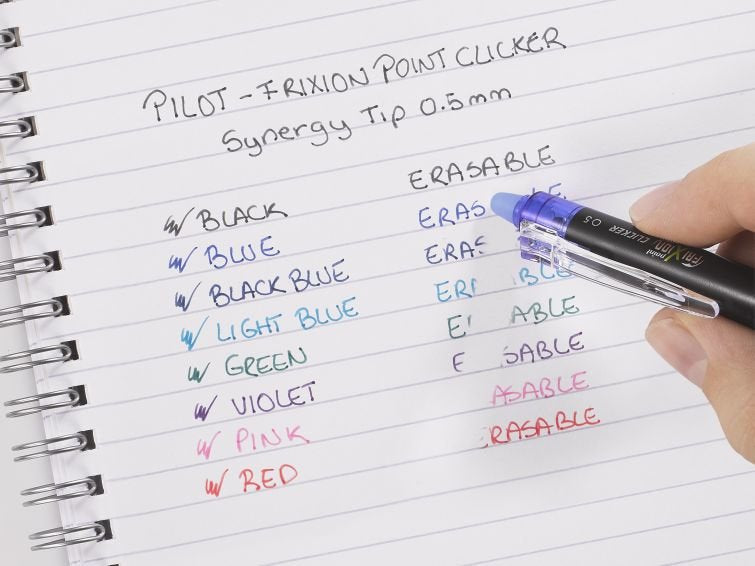 PILOT - FRIXION POINT CLICKER
Synergy Tip 0.5mm
ERASABLE
BLACK ERAS BLE
BLUE ERAS
BLACK BLUE ER BLE
LIGHT BLUE E ABLE
GREEN E SABLE
VIOLET ASABLE
PINK RASABLE
RED
FRIXION point CLICKER 0.5